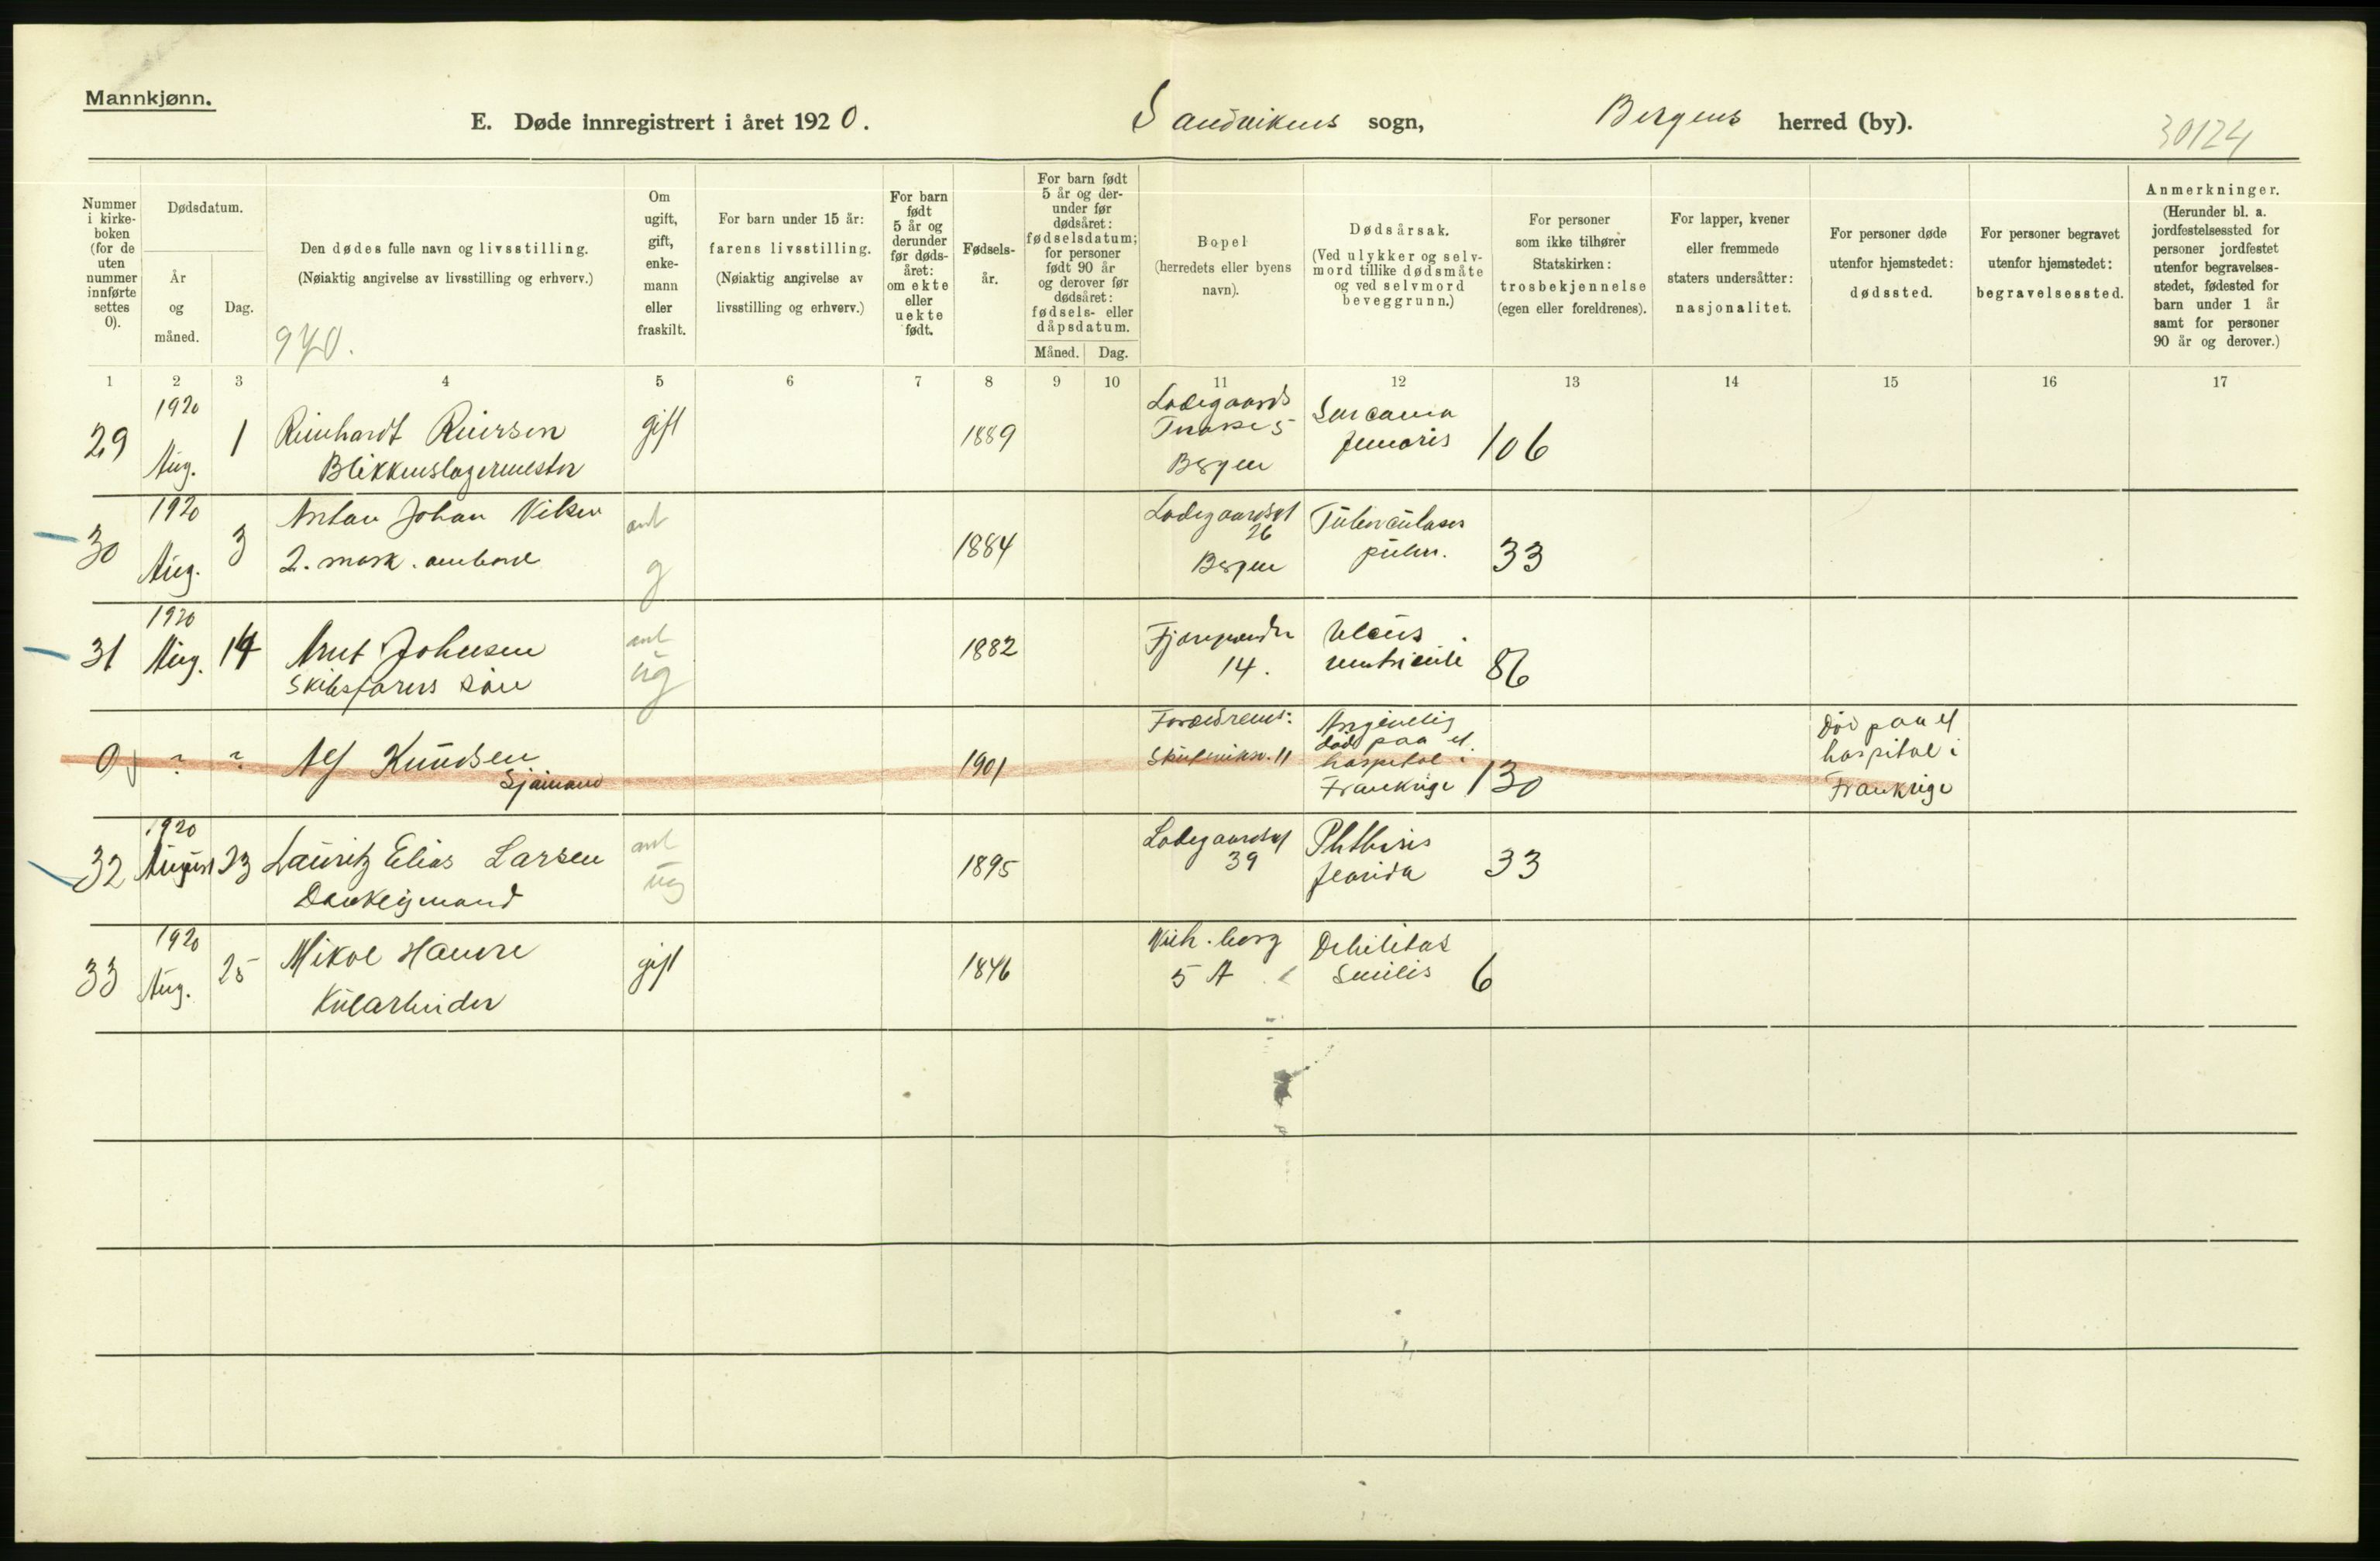 Mannkjønn.
E. Døde innregistrert i året 1920. Sandvikens sogn, Bergens herred (by). 30124
Nummer i kirkeboken (for de uten nummer innførte settes 0).
Dødsdatum.
År og måned.
Dag.
Den dødes fulle navn og livsstilling.
(Nøiaktig angivelse av livsstilling og erhverv.)
Om ugift, gift, enkemann eller fraskilt.
For barn under 15 år: farens livsstilling.
(Nøiaktig angivelse av livsstilling og erhverv.)
For barn født 5 år og derunder før dødsåret: om ekte eller uekte født.
Fødselsår.
For barn født 5 år og derunder før dødsåret: fødselsdatum; for personer født 90 år og derover før dødsåret: fødsels- eller dåpsdatum.
Måned. Dag.
Bopel (herredets eller byens navn).
Dødsårsak.
(Ved ulykker og selvmord tillike dødsmåte og ved selvmord beveggrunn.)
For personer som ikke tilhører Statskirken: trosbekjennelse (egen eller foreldrenes).
For lapper, kvener eller fremmede staters undersåtter: nasjonalitet.
For personer døde utenfor hjemstedet: dødssted.
For personer begravet utenfor hjemstedet: begravelsessted.
Anmerkninger.
(Herunder bl. a. jordfestelsessted for personer jordfestet utenfor begravelsesstedet, fødested for barn under 1 år samt for personer 90 år og derover.)
1 2 3 4 5 6 7 8 9 10 11 12 13 14 15 16 17
29 1920 Aug. 1 Reinhardt Reiersen gift 1889 Ladegaards
Blikkenslagermester 5 Bergen Sarcoma femoris 106
30 1920 Aug. 3 Anton Johan Vilsen ant g 1884 Ladegaardsgt 26
2. mask. ombord Bergen Tuberculoses pulm. 33
31 1920 Aug. 14 Arnt Johnsen ant ug 1882
Skibsførers søn 14. Ulcus ventriculi 86
0 ? ? Alf Knudsen 1901 Forældrenes: 11
Sjømand Angivelig død paa et hospital i Frankrige 130 Død paa et hospital i Frankrige
32 1920 August 23 Lauritz Elias Larsen ant ug 1895 Ladegaardsgt 39
Donkeymand Phthisis florida 33
33 1920 Aug. 25 Mikal Hamre gift 1846 5 A
Kularbeider Debilitas senilis 6